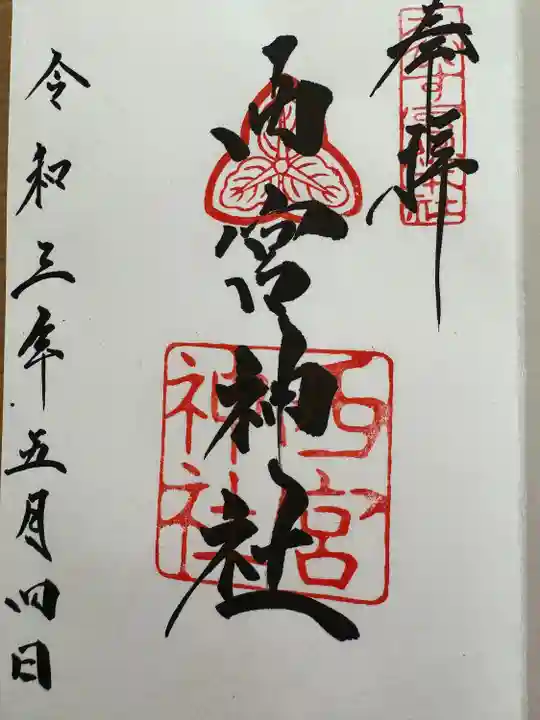 奉拝
西宮神社
西宮
神社
令和三年五月四日